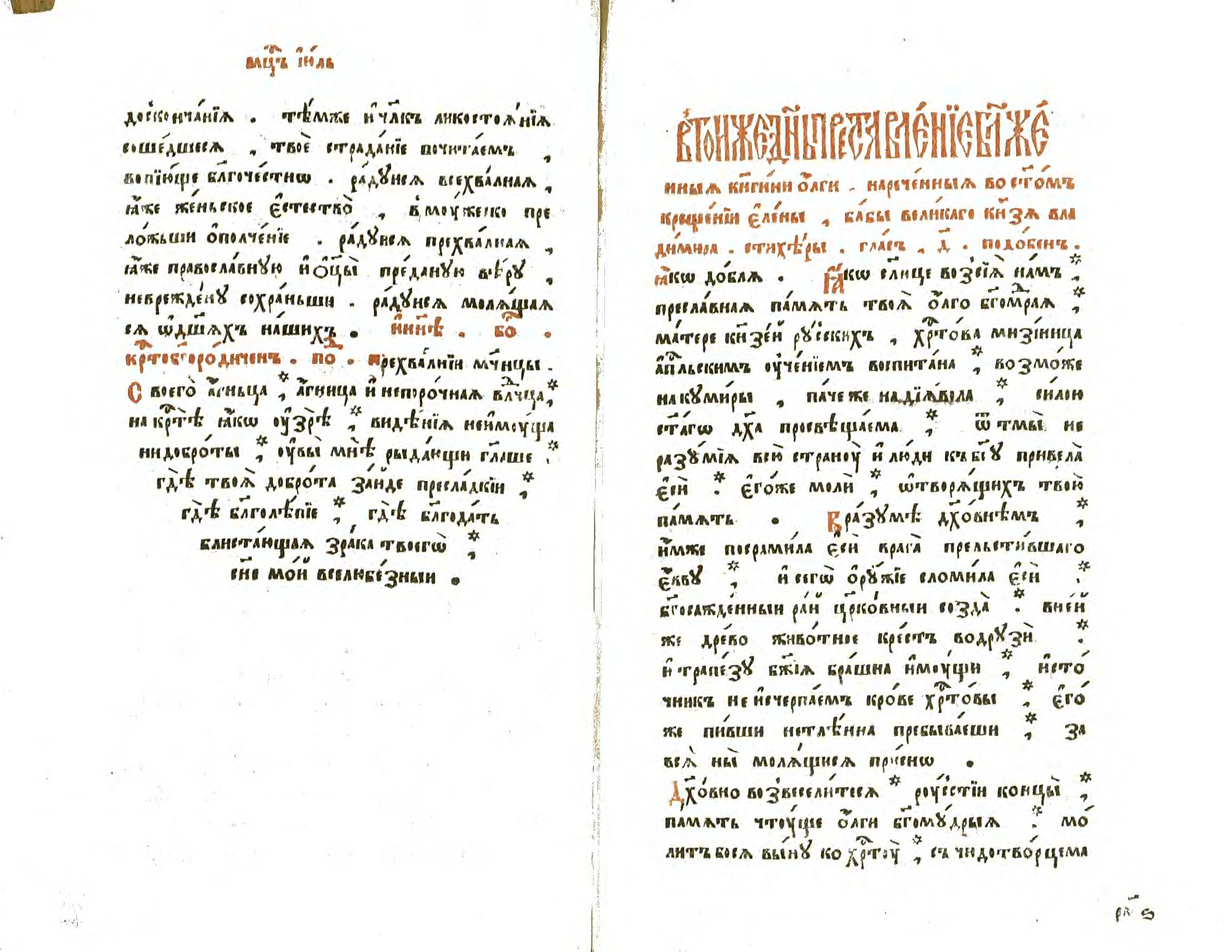 мц҃ъ і҆ю́ль
досконча́нїѧ . тѣ́мже и҆ чл҃къ ликостоѧ́нїѧ
соше́дшесѧ , твоѐ страда́нїе почита́емъ ,
вопїю́ще бл҃гоче́стнѡ . ра́дуисѧ всехва́лнаѧ ,
ꙗ҆́же же́ньское є҆стество̀ , в̾ мꙋ́жеско пре
ло́жьши ѡ҆полче́нїе . ра́дуисѧ прехва́лнаѧ ,
ꙗ҆́же правосла́вную и҆ ѻ҆ц҃ы̀ пре́даную вѣ́рꙋ ,
невреждє́нꙋ сохра́ньши . ра́дуисѧ молѧ́щаѧ
сѧ ѡ҆ дш҃а́хъ на́шихъ . и҆ нн҃ѣ . бо҃ .
крⷭ҇тобг҃оро́диченъ . по҃ . прехва́лнїи мч҃нцы .
Своего̀ а҆́гньца * а҆́гница и҆ непоро́чнаѧ вл҃чца ,
на крⷭ҇тѣ̀ ꙗ҆́кѡ ᲂу҆зрѣ̀ * видѣ́нїѧ неи҆мꙋ́ща
ни добро́ты * ᲂу҆вы̀ мнѣ̀ рыда́ющи гл҃аше *
гдѣ̀ твоѧ̀ добро́та за́иде пресла́дкїи *
гдѣ̀ бл҃голѣ́пїе * гдѣ̀ бл҃года́ть
блиста́ющаѧ зра́ка твоегѡ̀ *
сн҃е мо́й вселюбе́зныи .
В то́иже дн҃ь преⷭ҇тавле́нїе бл҃же́
нныѧ кнѧги́ни ѻ҆́лги . нарече́нныѧ во ст҃о́мъ
креще́нїи є҆ле́ны , ба́бы вели́каго кн҃зѧ вла
ди́мира . стихѣ́ры . гла́съ , д҃ . подо́бенъ .
ꙗ҆́кѡ до́блѧ . Ꙗ҆́кѡ сл҃нце возсїѧ̀ на́мъ *
пресла́внаѧ па́мѧть твоѧ̀ ѻ҆́лго бг҃омⷣраѧ *
ма́тере кн҃зе́й рꙋ́сскихъ , хрⷭ҇то́ва мизи́ница
а҆пⷭ҇льскимъ ᲂу҆че́нїемъ воспита́на * возмо́же
на кꙋми́ры , па́че же на дїѧ́вола * си́лою
ст҃а́гѡ дх҃а просвѣща́ема * ѿ тмы̀ не
разꙋ́мїѧ всю̀ странꙋ̀ и҆ лю́ди къ бг҃ꙋ привела̀
є҆сѝ . є҆го́же молѝ * ѡ҆ творѧ́щихъ твою̀
па́мѧть . Вра́зꙋмѣ дх҃о́внѣмъ *
и҆́мже посрами́ла є҆сѝ врага̀ прельсти́вшаго
є҆́ввꙋ * и҆ сегѡ̀ ѻ҆рꙋ́жїе сломи́ла є҆сѝ *
бг҃осажде́нныи ра́й цр҃ко́вныи созда̀ * в не́й
же дре́во живо́тное кре́стъ водрꙋзѝ *
и҆ трапе́зꙋ бж҃їѧ бра́шна и҆мꙋ́щи * и҆сто́
чникъ неи҆счерпа́емъ кро́ве хрⷭ҇то́вы * є҆го́
же пи́вши нетлѣ́нна пребыва́еши * за
всѧ̀ ны̀ молѧ́щисѧ при́снѡ .
Дх҃о́вно возвесели́тесѧ * рꙋ́стїи концы̀ *
па́мѧть чтꙋ́ще ѻ҆́лги бг҃омꙋ́дрыѧ * мо́
литъ бо сѧ вы́нꙋ ко хрⷭ҇тꙋ̀ * съ чидотво́рцема